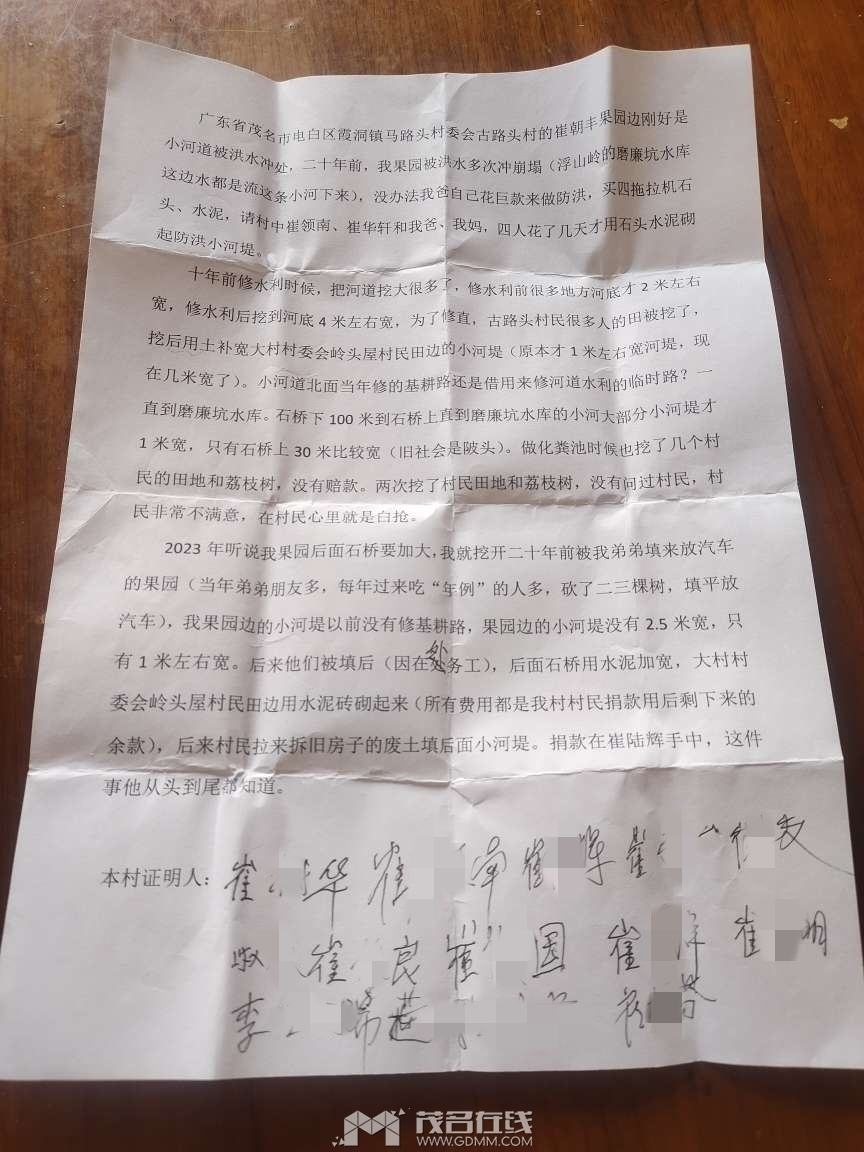 广东省茂名市电白区霞洞镇马路头村委会古路头村的崔朝丰果园边刚好是
小河道被洪水冲处，二十年前，我果园被洪水多次冲崩塌（浮山岭的磨廉坑水库
这边水都是流这条小河下来），没办法我爸自己花巨款来做防洪，买四拖拉机石
头、水泥，请村中崔领南、崔华轩和我爸、我妈，四人花了几天才用石头水泥砌
起防洪小河堤。
十年前修水利时候，把河道挖大很多了，修水利前很多地方河底才 2 米左右
宽，修水利后挖到河底 4 米左右宽，为了修直，古路头村民很多人的田被挖了，
挖后用土补宽大村村委会岭头屋村民田边的小河堤（原本才 1 米左右宽河堤，现
在几米宽了）。小河道北面当年修的基耕路还是借用来修河道水利的临时路？一
直到磨廉坑水库。石桥下 100 米到石桥上直到磨廉坑水库的小河大部分小河堤才
1 米宽，只有石桥上 30 米比较宽（旧社会是陂头）。做化粪池时候也挖了几个村
民的田地和荔枝树，没有赔款。两次挖了村民田地和荔枝树，没有问过村民，村
民非常不满意，在村民心里就是白抢。
2023 年听说我果园后面石桥要加大，我就挖开二十年前被我弟弟填来放汽车
的果园（当年弟弟朋友多，每年过来吃“年例”的人多，砍了二三棵树，填平放
汽车），我果园边的小河堤以前没有修基耕路，果园边的小河堤没有 2.5 米宽，只
有 1 米左右宽。后来他们被填后（因在外务工），后面石桥用水泥加宽，大村村
委会岭头屋村民田边用水泥砖砌起来（所有费用都是我村村民捐款用后剩下来的
余款），后来村民拉来拆旧房子的废土填后面小河堤。捐款在崔陆辉手中，这件
事他从头到尾都知道。
本村证明人：崔 华 崔 南 崔 崔
崔 良 崔 国 崔 洋 崔 明
李 燕
茂名在线
WWW.GDMM.COM